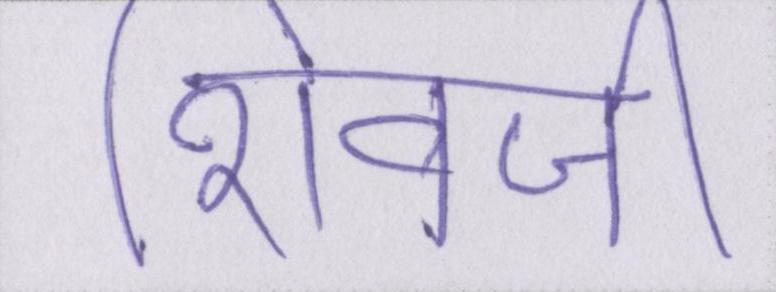 शिवजी